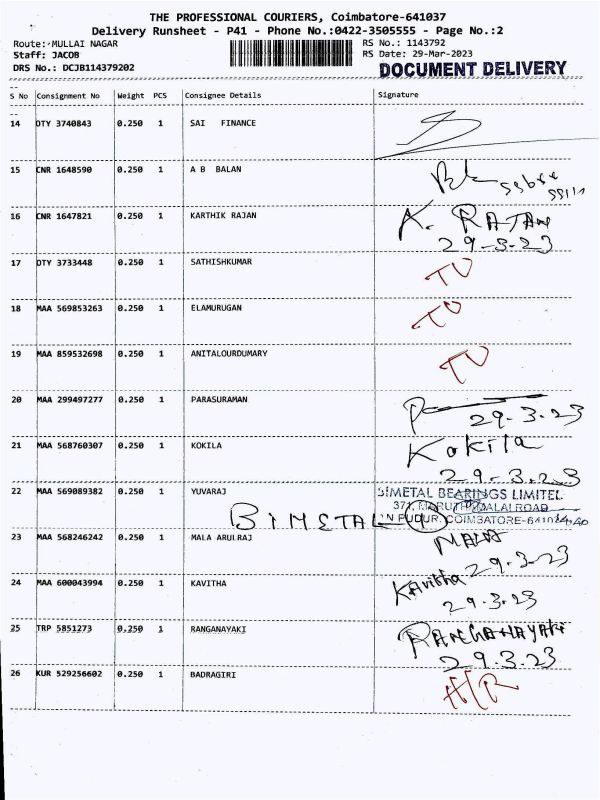 THE PROFESSIONAL COURIERS, Coimbatore-641037
Delivery Runsheet - P41 - Phone No.:0422-3505555 - Page No.:2
Route: MULLAI NAGAR RS No.: 1143792
Staff: JACOB RS Date: 29-Mar-2023
DRS No.: DCJB114379202 DOCUMENT DELIVERY
S No Consignment No Weight PCS Consignee Details Signature
14 DTY 3740843 0.250 1 SAI FINANCE
15 CNR 1648590 0.250 1 A B BALAN
16 CNR 1647821 0.250 1 KARTHIK RAJAN K. RAJAN
29-3-23
17 DTY 3733448 0.250 1 SATHISHKUMAR
18 MAA 569853263 0.250 1 ELAMURUGAN
19 MAA 859532698 0.250 1 ANITALOURDUMARY
20 MAA 299497277 0.250 1 PARASURAMAN
29-3-23
21 MAA 568760307 0.250 1 KOKILA Kokila
29-3-23
22 MAA 569089382 0.250 1 YUVARAJ BIMETAL BEARINGS LIMITED
371, MARUTHAMALAI ROAD
BIMETAL N PUDUR, COIMBATORE-6410
23 MAA 568246242 0.250 1 MALA ARULRAJ MALA
29-3-23
24 MAA 600043994 0.250 1 KAVITHA Kavitha
29-3-23
25 TRP 5851273 0.250 1 RANGANAYAKI RANGANAYAKI
29.3.23
26 KUR 529256602 0.250 1 BADRAGIRI